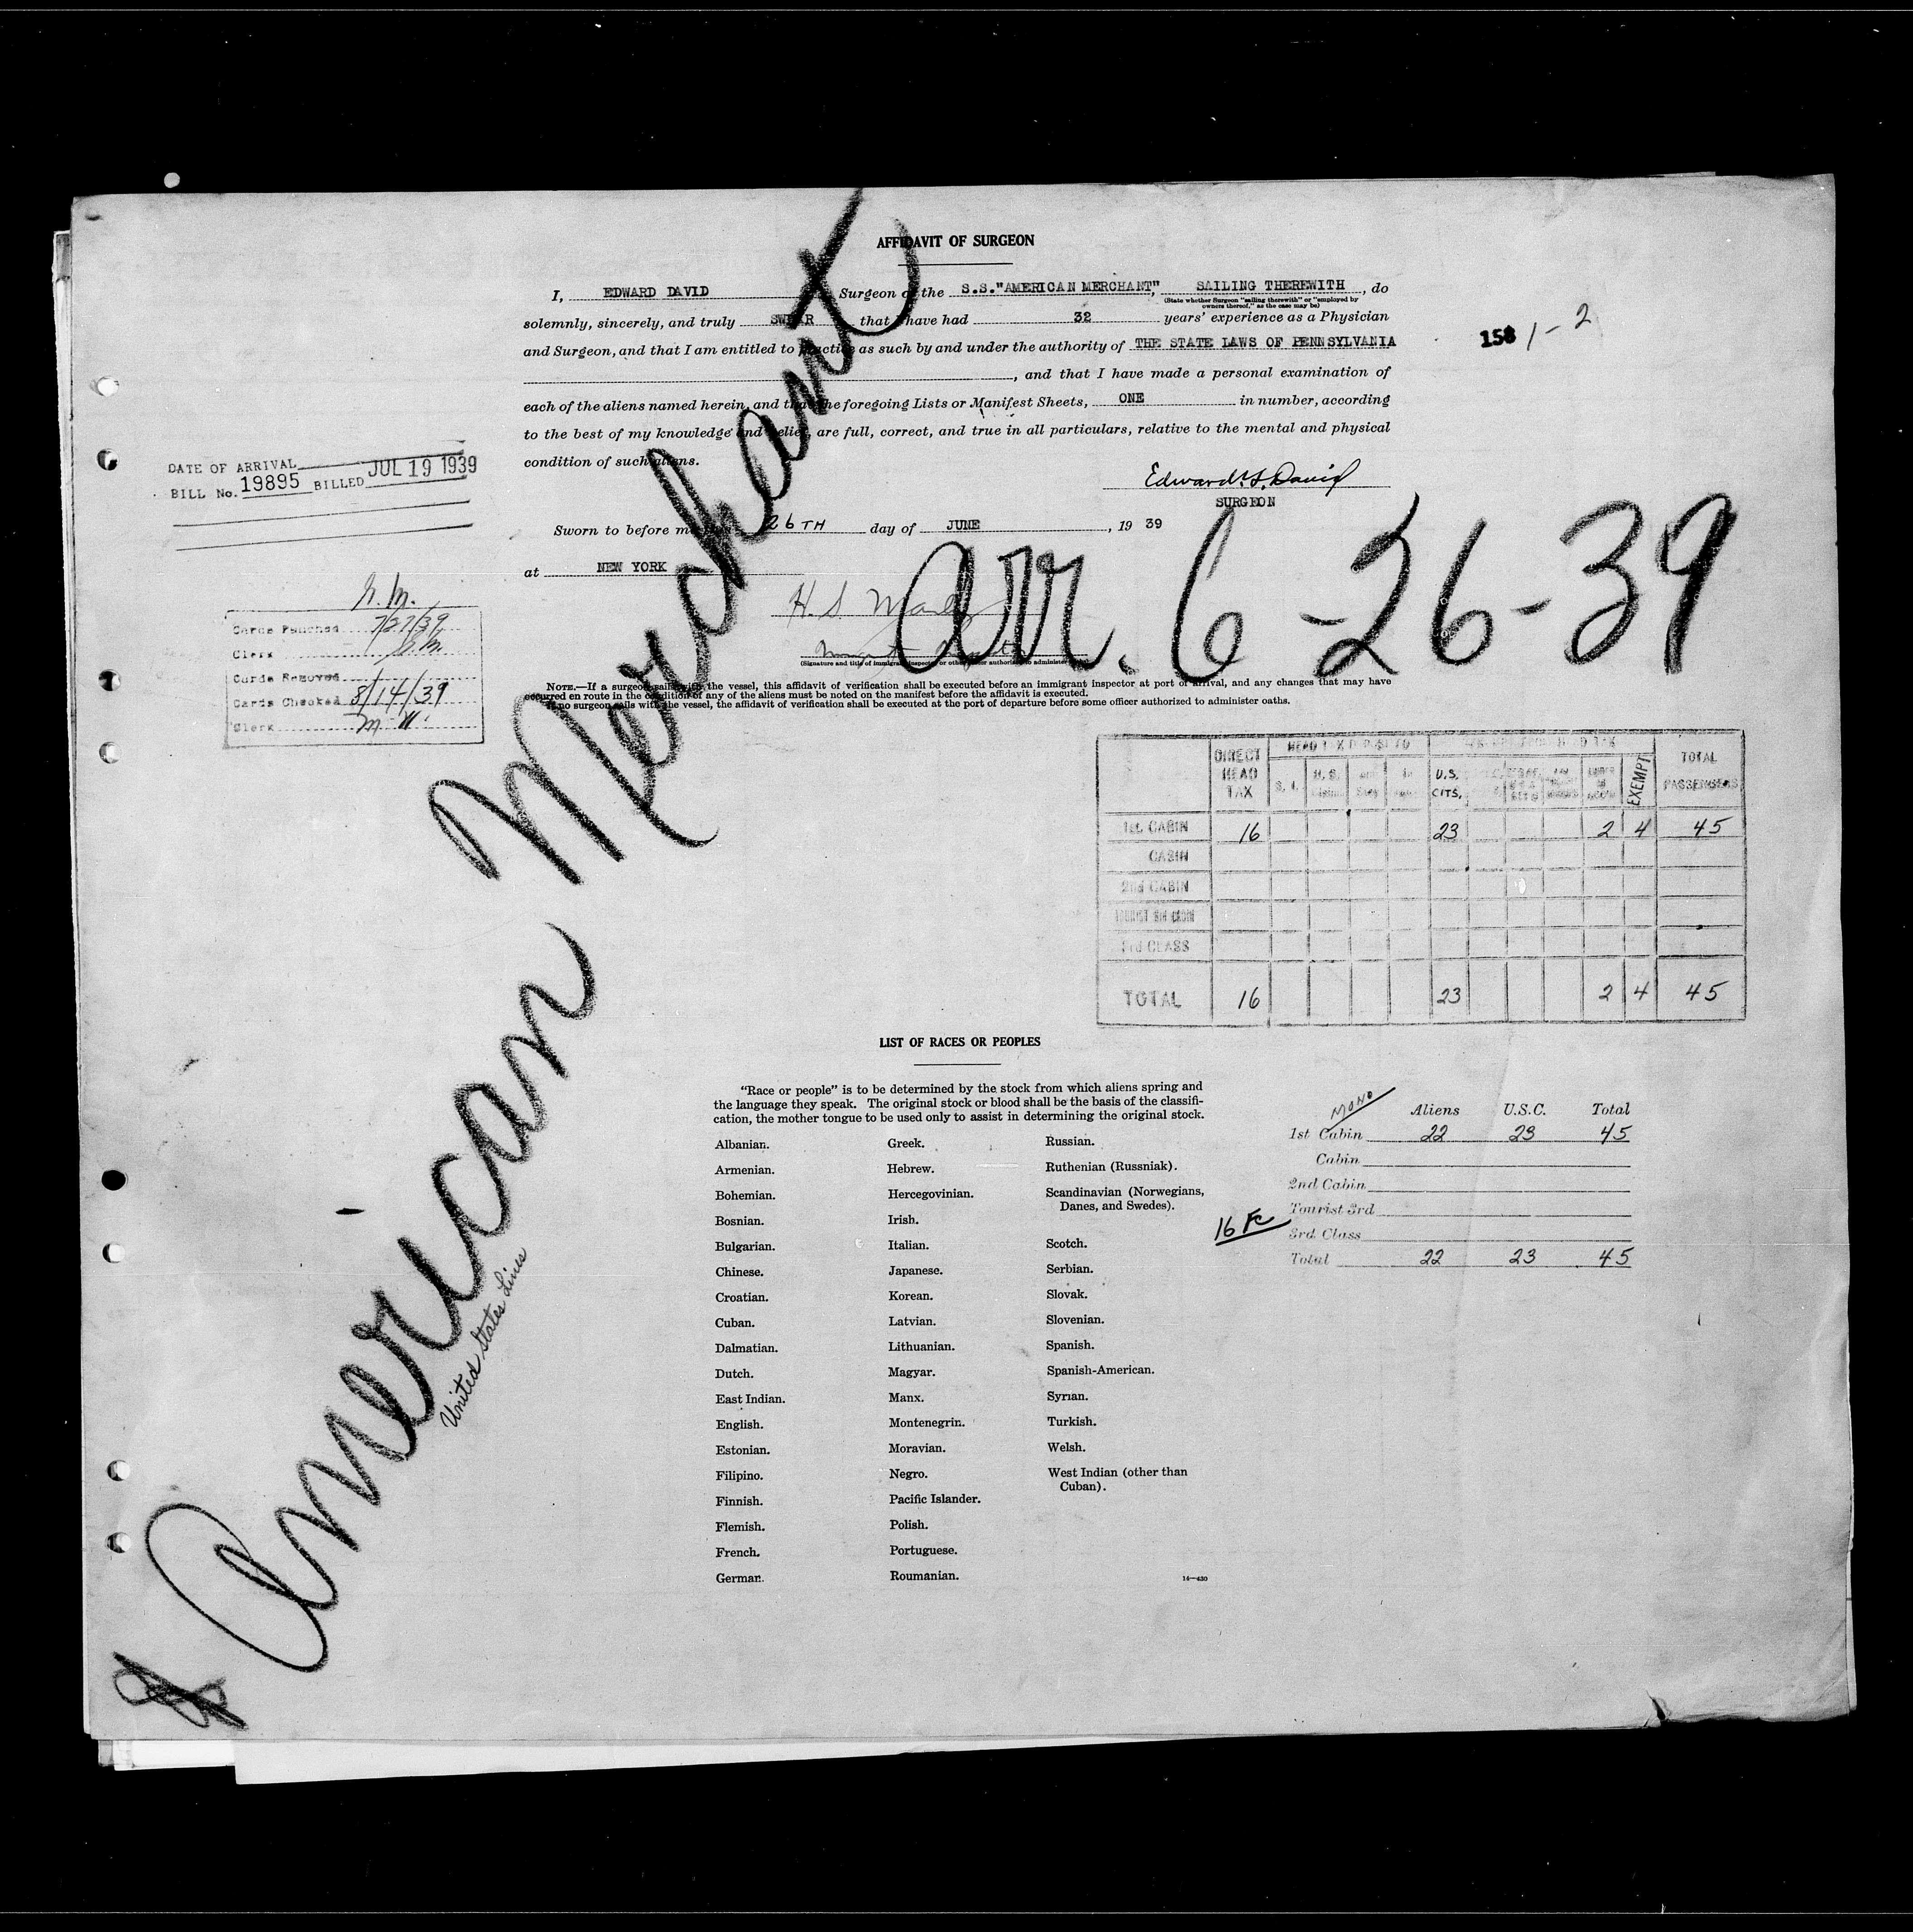 AFFIDAVIT OF SURGEON
I, EDWARD DAVID Surgeon of the S.S."AMERICAN MERCHANT", SAILING THEREWITH, do
(State whether Surgeon "sailing therewith" or "employed by
owners thereof," as the case may be)
solemnly, sincerely, and truly SWEAR that I have had 32 years' experience as a Physician
and Surgeon, and that I am entitled to practice as such by and under the authority of THE STATE LAWS OF PENNSYLVANIA
, and that I have made a personal examination of
each of the aliens named herein, and that the foregoing Lists or Manifest Sheets, ONE in number, according
to the best of my knowledge and belief, are full, correct, and true in all particulars, relative to the mental and physical
condition of such aliens.
158 1-2
DATE OF ARRIVAL JUL 19 1939
BILL No. 19895 BILLED
Edward S. David
SURGEON
Sworn to before me 26TH day of JUNE, 19 39
at NEW YORK
H. S.
(Signature and title of immigrant inspector or other officer authorized to administer
arr. 6-26-39
Cards Punched 7/27/39
Clerk
Cards Removed
Cards Checked 8/14/39
Clerk M. W.
NOTE.—If a surgeon sails with the vessel, this affidavit of verification shall be executed before an immigrant inspector at port of arrival, and any changes that may have
occurred en route in the condition of any of the aliens must be dited on the manifest before the affidavit is executed.
If no surgeon sails with the vessel, the affidavit of verification shall be executed at the port of departure before some officer authorized to administer oaths.
American Merchant
United States Lines
DIRECT HEAD TAX HEAD TAX S. I. U.S. CITS. EXEMPT TOTAL PASSENGERS
1st CABIN 16 23 2 4 45
CABIN
2nd CABIN
3rd CLASS
TOTAL 16 23 2 4 45
LIST OF RACES OR PEOPLES
"Race or people" is to be determined by the stock from which aliens spring and
the language they speak. The original stock or blood shall be the basis of the classifi-
cation, the mother tongue to be used only to assist in determining the original stock.
Albanian.
Armenian.
Bohemian.
Bosnian.
Bulgarian.
Chinese.
Croatian.
Cuban.
Dalmatian.
Dutch.
East Indian.
English.
Estonian.
Filipino.
Finnish.
Flemish.
French.
German.
Greek.
Hebrew.
Hercegovinian.
Irish.
Italian.
Japanese.
Korean.
Latvian.
Lithuanian.
Magyar.
Manx.
Montenegrin.
Moravian.
Negro.
Pacific Islander.
Polish.
Portuguese.
Roumanian.
Russian.
Ruthenian (Russniak).
Scandinavian (Norwegians,
Danes, and Swedes).
Scotch.
Serbian.
Slovak.
Slovenian.
Spanish.
Spanish-American.
Syrian.
Turkish.
Welsh.
West Indian (other than
Cuban).
16—430
MONO
Aliens U.S.C. Total
1st Cabin 22 23 45
Cabin
2nd Cabin
Tourist 3rd
16 Fc
3rd Class
Total 22 23 45